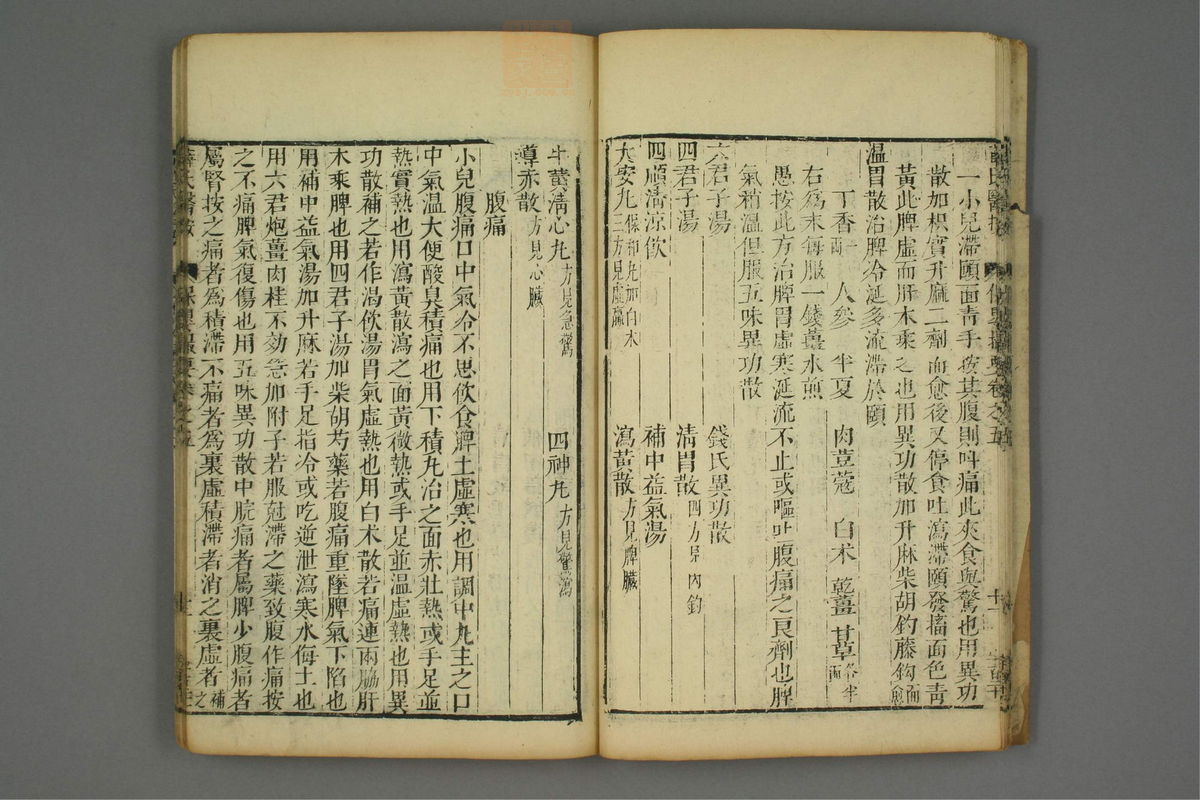 一小兒滯頤面青手按其腹則呌痛此夾食與驚也用異功
散加枳實升麻二劑而愈後又停食吐瀉滯頤發搐面色青
黃此脾虛而肝木乘之也用異功散加升麻柴胡鈎藤鈎而愈
溫胃散治脾冷涎多流滯於頤
丁香一兩 人參 半夏 肉荳蔻 白术 乾薑 甘草各半兩
右爲末每服一錢薑水煎
愚按此方治脾胃虛寒涎流不止或嘔吐腹痛之良劑也脾
氣稍溫但服五味異功散
六君子湯 錢氏異功散
四君子湯 淸胃散四方見內釣
四順淸涼飲 補中益氣湯
大安丸保和丸加白术三方見虛羸 瀉黃散方見脾臟
牛黃淸心丸方見急驚 四神丸方見驚瀉
導赤散方見心臟
腹痛
小兒腹痛口中氣冷不思飲食脾土虛寒也用調中丸主之口
中氣溫大便酸臭積痛也用下積丸治之面赤壯熱或手足並
熱實熱也用瀉黃散瀉之面黃微熱或手足並溫虛熱也用異
功散補之若作渴飲湯胃氣虛熱也用白术散若痛連兩脇肝
木乘脾也用四君子湯加柴胡芍藥若腹痛重墜脾氣下陷也
用補中益氣湯加升麻若手足指冷或吃逆泄瀉寒水侮土也
用六君炮薑肉桂不効急加附子若服尅滯之藥致腹作痛按
之不痛脾氣復傷也用五味異功散中脘痛者屬脾少腹痛者
屬腎按之痛者爲積滯不痛者爲裏虛積滯者消之裏虛者補之
薛氏醫按 保嬰撮要卷之五